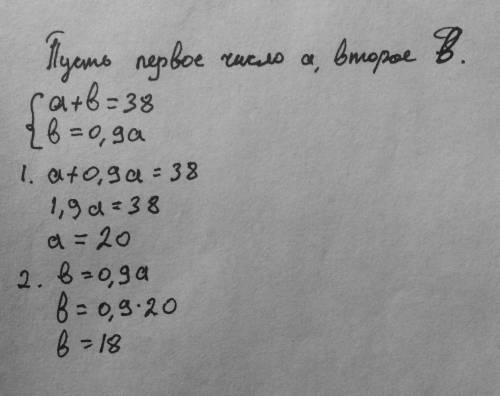 Пусть первое число a, второе в.
a+в=38
в=0,9a
1. a+0,9a=38
1,9a=38
a=20
2. в=0,9a
в=0,9·20
в=18